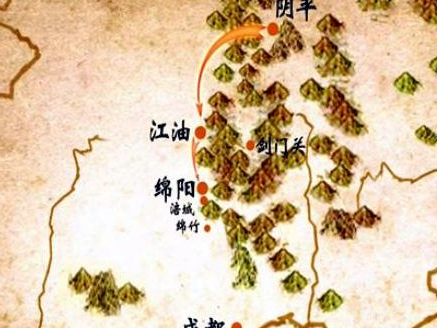 阴平
江油
剑门关
绵阳
涪城
绵竹
成都